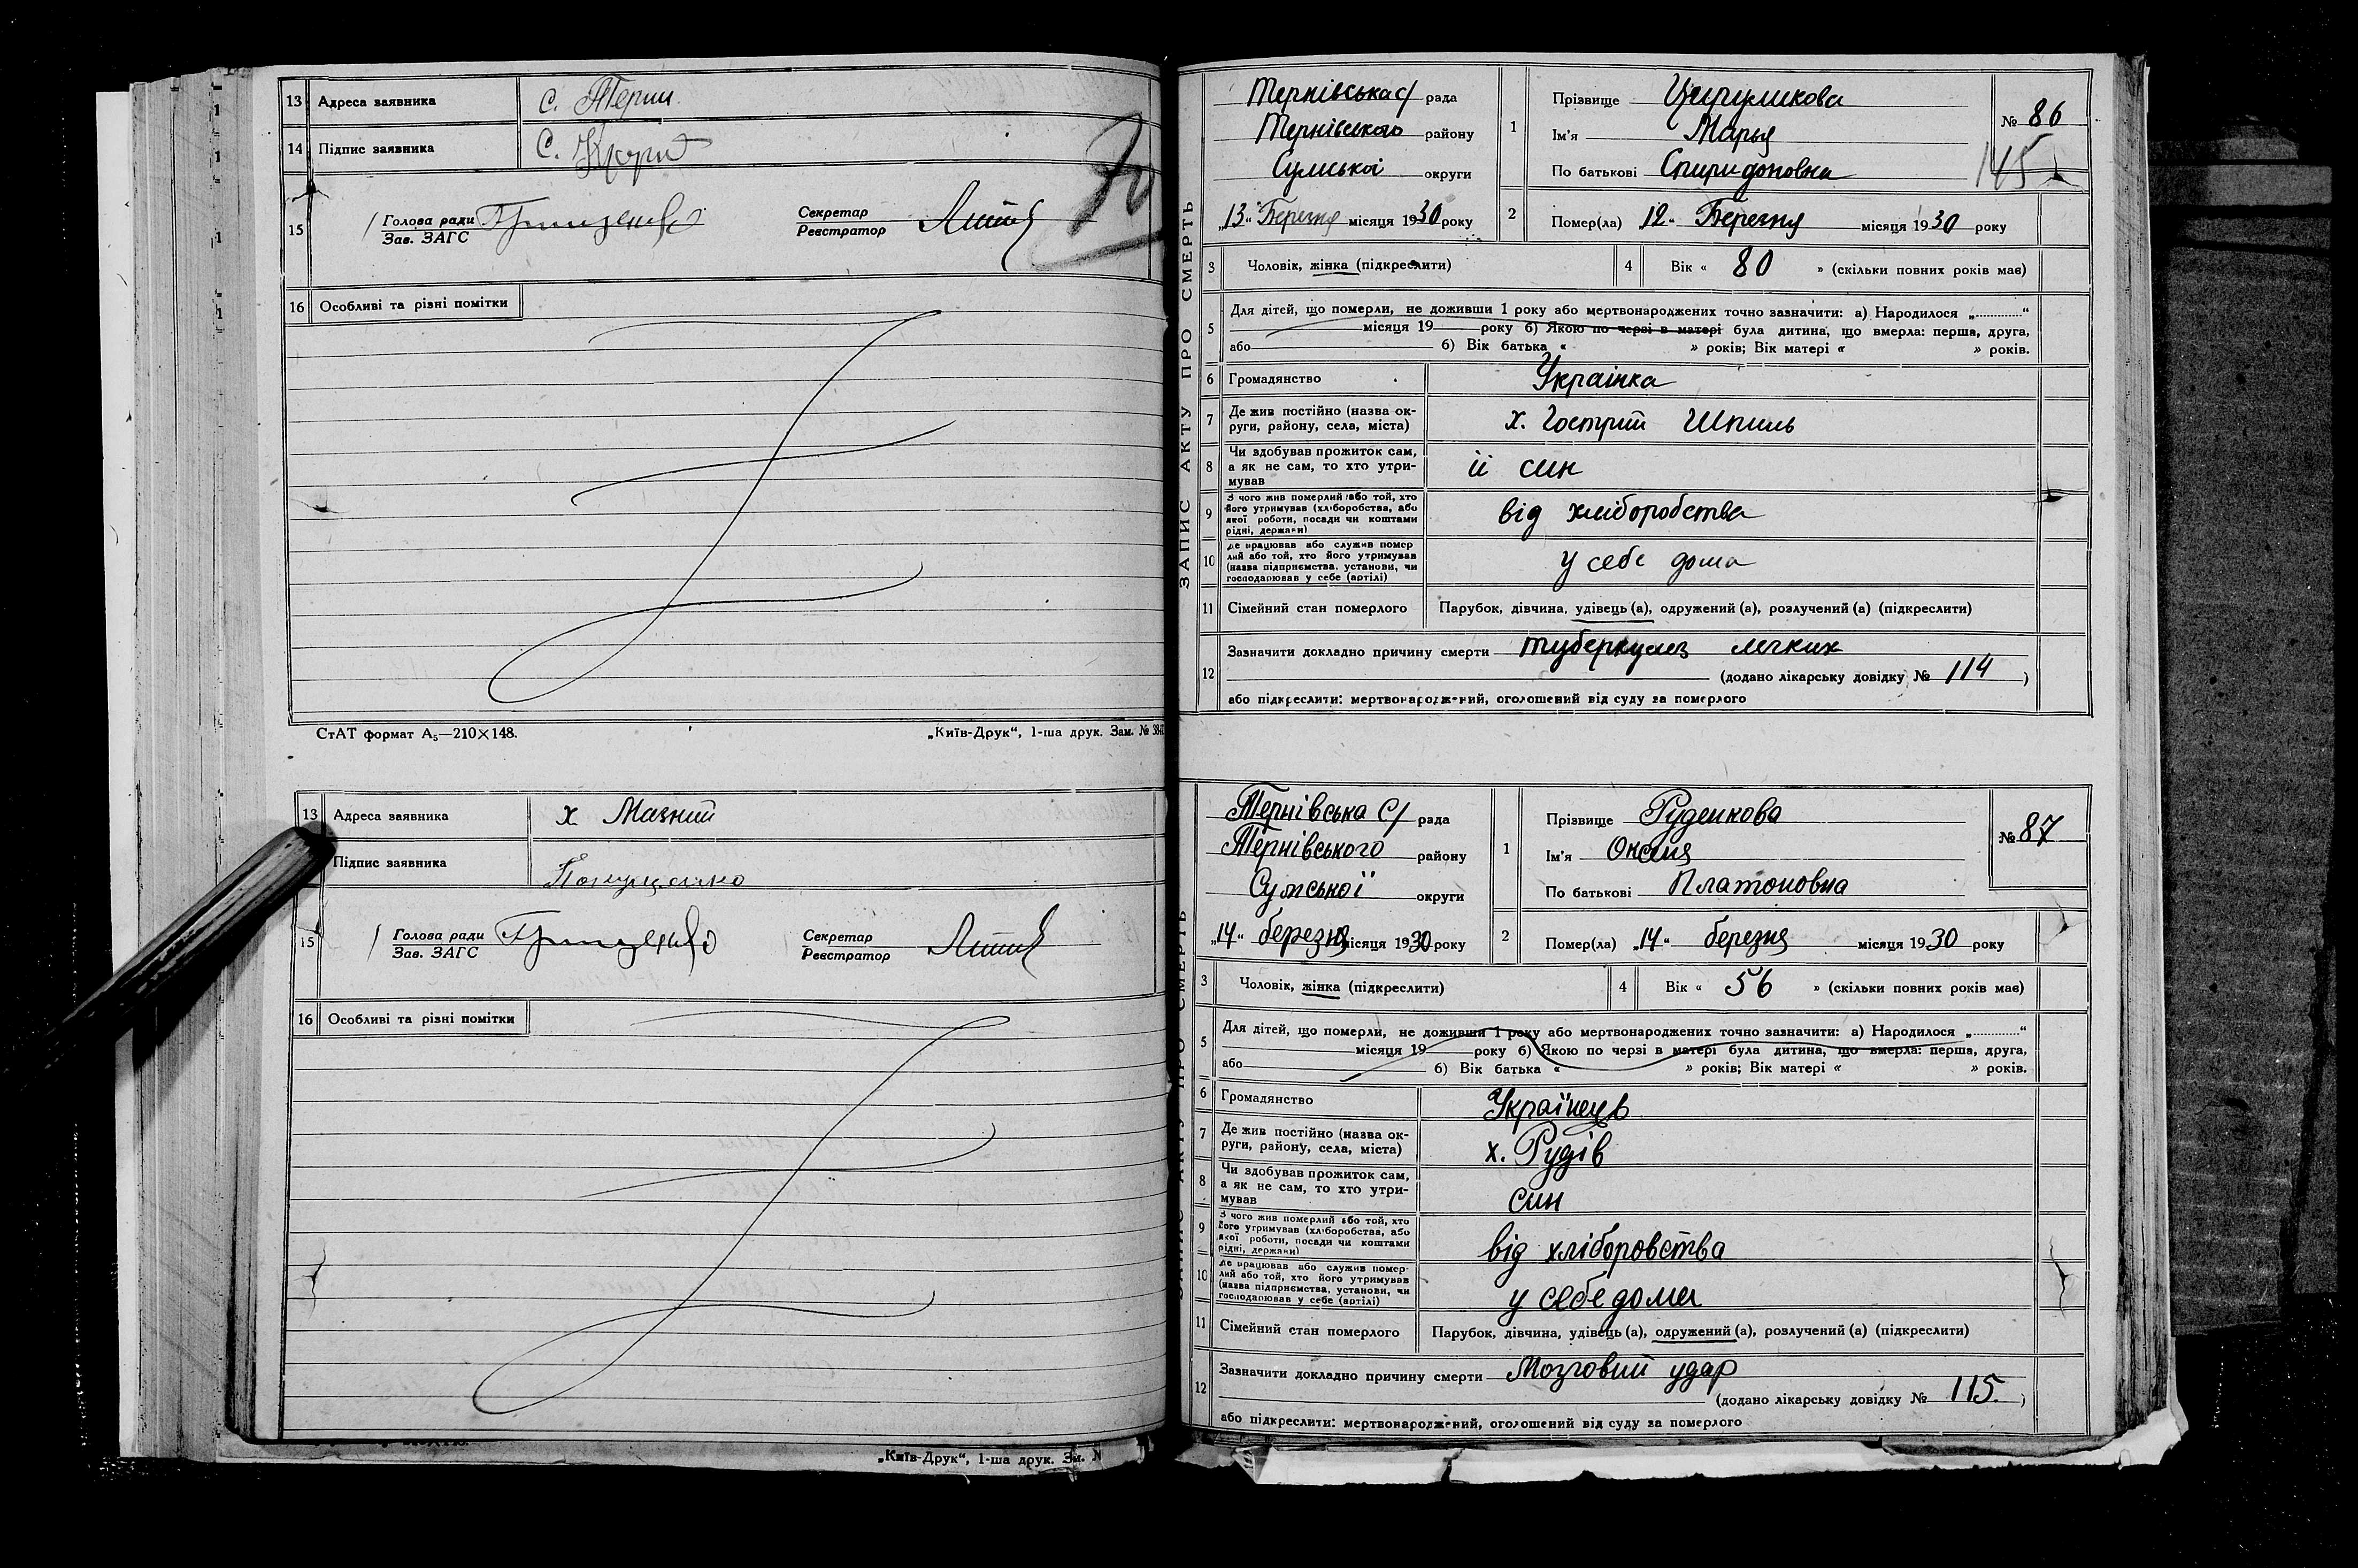 13 Адреса заявника с. Терни
14 Підпис заявника С.
15 Голова ради
Зав. ЗАГС
Секретар
Реєстратор
16 Особливі та різні помітки
СтАТ формат А₅—210×148.
„Київ-Друк“, 1-ша друк. Зам. №
13 Адреса заявника х Мазний
Підпис заявника
15 Голова ради
Зав. ЗАГС
Секретар
Реєстратор
16 Особливі та різні помітки
„Київ-Друк“, 1-ша друк.
ЗАПИС АКТУ ПРО СМЕРТЬ
Тернівська с/ рада
Тернівського району
Сумської округи
„13“ Березня місяця 1930 року
1 Прізвище Цирульикова
Ім'я Марья
По батькові Спиридоновна
№ 86
145
2 Помер(ла) 12“ Березня місяця 1930 року
3 Чоловік, жінка (підкреслити)
4 Вік « 80 » (скільки повних років має)
5 Для дітей, що померли, не доживши 1 року або мертвонароджених точно зазначити: а) Народилося „............“
місяця 19 року б) Якою по черзі в матері була дитина, що вмерла: перша, друга,
або б) Вік батька « » років; Вік матері « » років.
6 Громадянство Українка
7 Де жив постійно (назва ок-
руги, району, села, міста) х. Гострий Шпиль
8 Чи здобував прожиток сам,
а як не сам, то хто утри-
мував її син
9 З чого жив померлий або той, хто
його утримував (хліборобства, або
якої роботи, посади чи коштами
рідні, держави) від хліборобства
10 Де працював або служив помер
лий або той, хто його утримував
(назва підприємства, установи, чи
господарював у себе (артілі) у себе дома
11 Сімейний стан померлого Парубок, дівчина, удівець (а), одружений (а), розлучений (а) (підкреслити)
12 Зазначити докладно причину смерти туберкульоз легких
(додано лікарську довідку № 114 )
або підкреслити: мертвонароджений, оголошений від суду за померлого
Тернівська С/ рада
Тернівського району
Сумської округи
„14“ березня місяця 1930 року
1 Прізвище Руденкова
Ім'я Оксана
По батькові Платоновна
№ 87
2 Помер(ла) „14“ березня місяця 1930 року
3 Чоловік, жінка (підкреслити)
4 Вік « 56 » (скільки повних років має)
5 Для дітей, що померли, не доживши 1 року або мертвонароджених точно зазначити: а) Народилося „............“
місяця 19 року б) Якою по черзі в матері була дитина, що вмерла: перша, друга,
або б) Вік батька « » років; Вік матері « » років.
6 Громадянство Українець
7 Де жив постійно (назва ок-
руги, району, села, міста) х. Рудів
8 Чи здобував прожиток сам,
а як не сам, то хто утри-
мував син
9 З чого жив померлий або той, хто
його утримував (хліборобства, або
якої роботи, посади чи коштами
рідні, держави) від хліборовства
10 Де працював або служив помер-
лий або той, хто його утримував
(назва підприємства, установи, чи
господарював у себе (артілі) у себе дома
11 Сімейний стан померлого Парубок, дівчина, удівець (а), одружений (а), розлучений (а) (підкреслити)
12 Зазначити докладно причину смерти Мозговий удар
(додано лікарську довідку № 115. )
або підкреслити: мертвонароджений, оголошений від суду за померлого